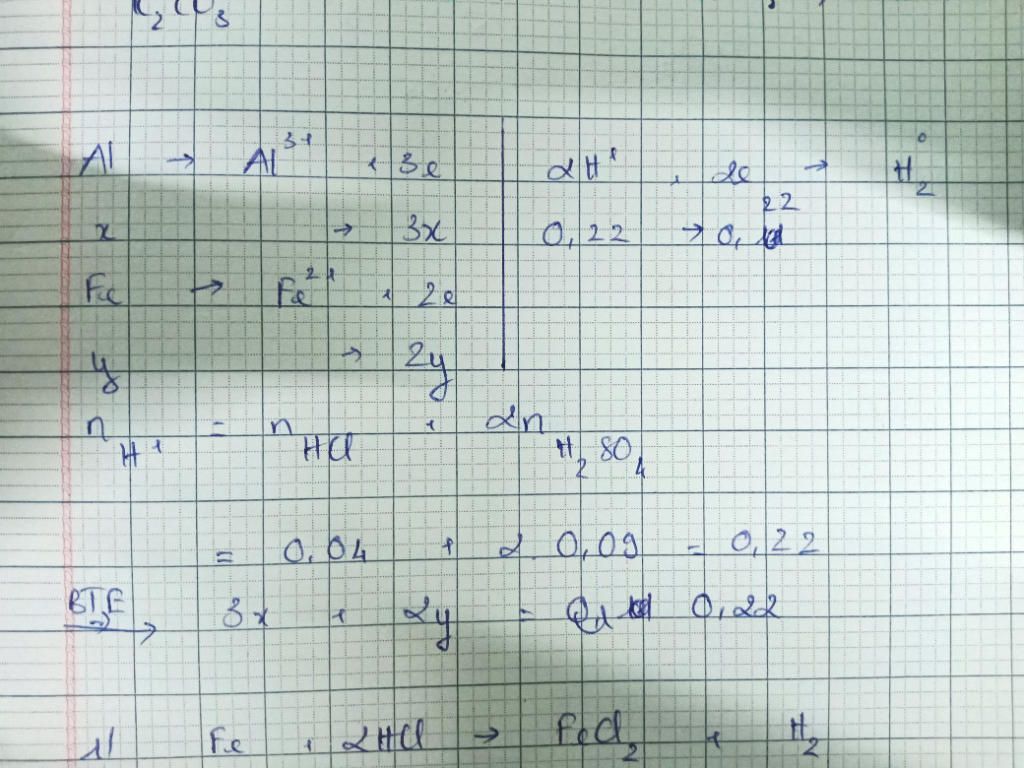 K₂CO₃
Al → Al³⁺ + 3e | 2H⁺ + 2e → H₂⁰
x → 3x | 0,22 → 0,22
Fe → Fe²⁺ + 2e
y → 2y
n H⁺ = n HCl + 2n H₂SO₄
= 0,04 + 2. 0,09 = 0,22
BTE → 3x + 2y = 0,22
Fe + 2HCl → FeCl₂ + H₂